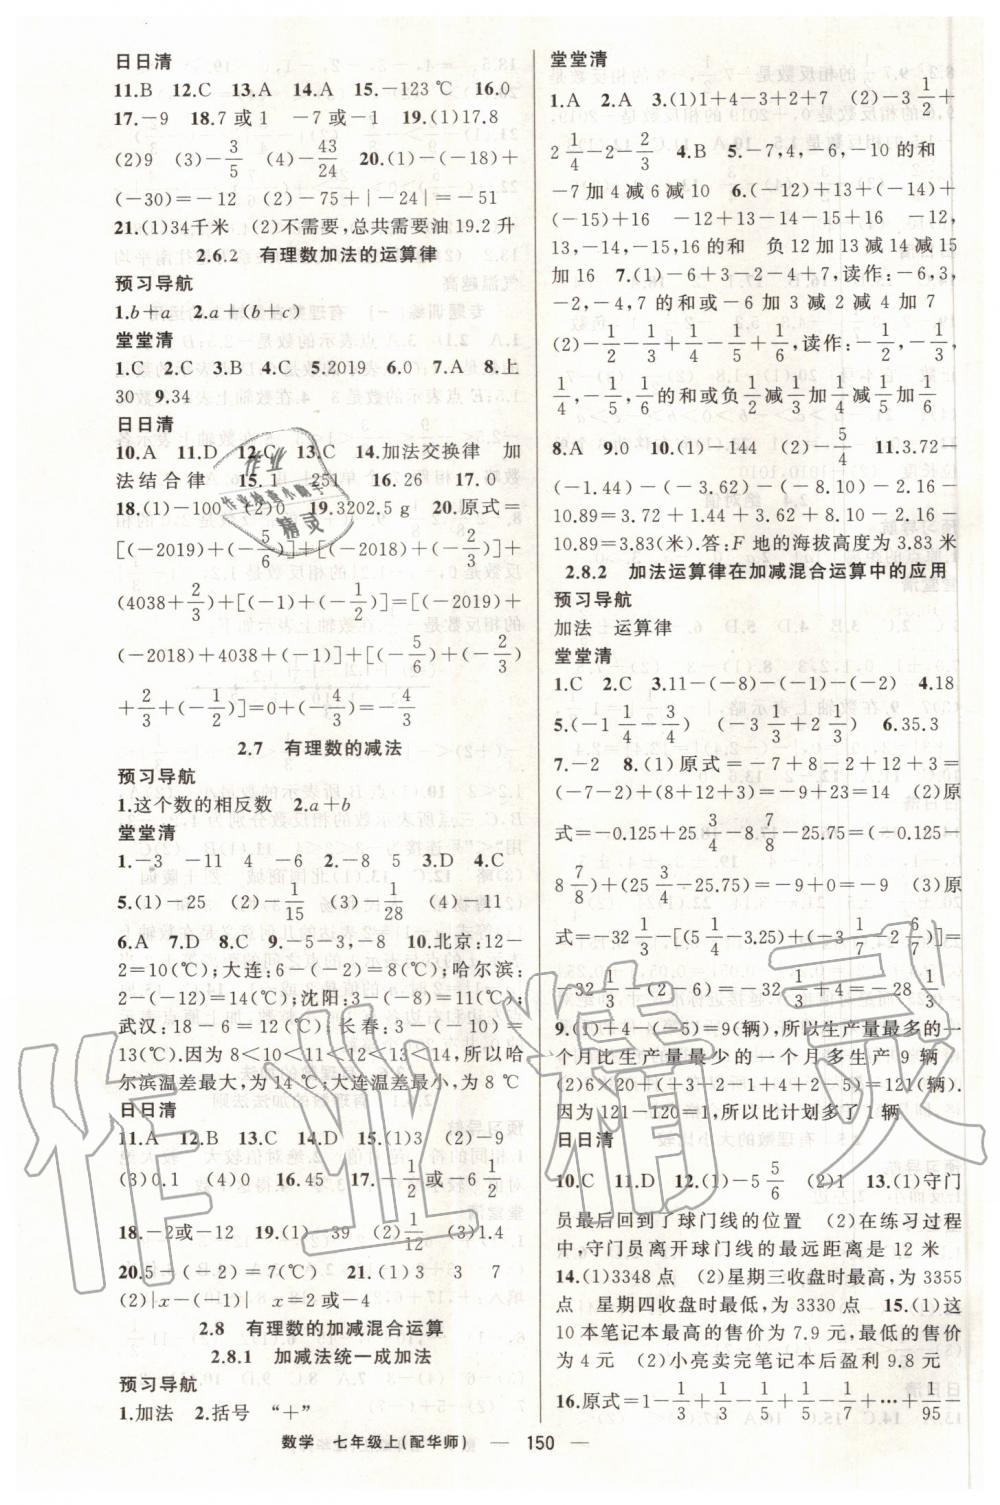 日日清
11.B 12.C 13.A 14.A 15.-123 ℃ 16.0
17.-9 18.7 或 1 -7 或-1 19.(1)17.8
(2)9 (3)-3/5 (4)-43/24 20.(1)-(-18)+
(-30)=-12 (2)-75+|-24|=-51
21.(1)34千米 (2)不需要,总共需要油 19.2 升
2.6.2 有理数加法的运算律
预习导航
1.b+a 2.a+(b+c)
堂堂清
1.C 2.C 3.B 4.C 5.2019 6.0 7.A 8.上
30 9.34
日日清
10.A 11.D 12.C 13.C 14.加法交换律 加
法结合律 15.1 251 16.26 17.0
18.(1)-100 (2)0 19.3202.5 g 20.原式=
[(-2019)+(-5/6)]+[(-2018)+(-2/3)]+
(4038+2/3)+[(-1)+(-1/2)]=[(-2019)+
(-2018)+4038+(-1)]+[(-5/6)+(-2/3)
+2/3+(-1/2)]=0+(-4/3)=-4/3
2.7 有理数的减法
预习导航
1.这个数的相反数 2.a+b
堂堂清
1.-3 -11 4 -6 2.-8 5 3.D 4.C
5.(1)-25 (2)-1/15 (3)-1/28 (4)-11
6.A 7.D 8.C 9.-5-3,-8 10.北京:12-
2=10(℃);大连:6-(-2)=8(℃);哈尔滨:
2-(-12)=14(℃);沈阳:3-(-8)=11(℃);
武汉:18-6=12(℃);长春:3-(-10)=
13(℃).因为 8<10<11<12<13<14,所以哈
尔滨温差最大,为 14 ℃;大连温差最小,为 8 ℃
日日清
11.A 12.B 13.C 14.D 15.(1)3 (2)-9
(3)0.1 (4)0 16.45 17.-1/2或-6 1/2
18.-2或-12 19.(1)-39 (2)-1/12 (3)1.4
20.5-(-2)=7(℃) 21.(1)3 3 7
(2)|x-(-1)| x=2或-4
2.8 有理数的加减混合运算
2.8.1 加减法统一成加法
预习导航
1.加法 2.括号 “+”
堂堂清
1.A 2.A 3.(1)1+4-3+2+7 (2)-3 1/2+
2 1/4-2-2/3 4.B 5.-7,4,-6,-10 的和
-7加 4 减 6 减 10 6.(-12)+13+(-14)+
(-15)+16 -12+13-14-15+16 -12,
13,-14,-15,16 的和 负 12 加 13 减 14 减 15
加 16 7.(1)-6+3-2-4+7,读作:-6,3,
-2,-4,7 的和或-6 加 3 减 2 减 4 加 7
(2)-1/2-1/3+1/4-1/5+1/6,读作:-1/2,-1/3,
1/4,-1/5,1/6的和或负1/2减1/3加1/4减1/5加1/6
8.A 9.0 10.(1)-144 (2)-5/4 11.3.72-
(-1.44)-(-3.62)-(-8.10)-2.16-
10.89=3.72+1.44+3.62+8.10-2.16-
10.89=3.83(米).答:F 地的海拔高度为 3.83 米
2.8.2 加法运算律在加减混合运算中的应用
预习导航
加法 运算律
堂堂清
1.C 2.C 3.11-(-8)-(-1)-(-2) 4.18
5.(-1 1/4-3/4) (-3 1/3+2 1/3) 6.35.3
7.-2 8.(1)原式=-7+8-2+12+3=
(-7-2)+(8+12+3)=-9+23=14 (2)原
式=-0.125+25 3/4-8 7/8-25.75=(-0.125-
8 7/8)+(25 3/4-25.75)=-9+0=-9 (3)原
式=-32 1/3-[(5 3/4-3.25)+(-3 1/7-2 6/7)]=
-32 1/3-(2-6)=-32 1/3+4=-28 1/3
9.(1)+4-(-5)=9(辆),所以生产量最多的一
个月比生产量最少的一个月多生产 9 辆
(2)6×20+(+3-2-1+4+2-5)=121(辆).
因为 121-120=1,所以比计划多了 1 辆
日日清
10.C 11.D 12.(1)-5 5/6 (2)1 13.(1)守门
员最后回到了球门线的位置 (2)在练习过程
中,守门员离开球门线的最远距离是 12 米
14.(1)3348 点 (2)星期三收盘时最高,为 3355
点 星期四收盘时最低,为 3330 点 15.(1)这
10 本笔记本最高的售价为 7.9 元,最低的售价
为 4 元 (2)小亮卖完笔记本后盈利 9.8 元
16.原式=1-1/3+1/3-1/5+1/5-1/7+…+1/95
数学 七年级上(配华师) — 150 —
作业精灵